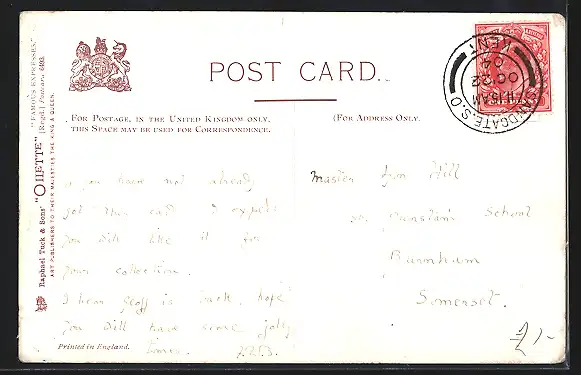 "FAMOUS EXPRESSES."
Raphael Tuck & Sons' "OILETTE" [Regd.] Postcard 6493.
ART PUBLISHERS TO THEIR MAJESTIES THE KING & QUEEN.
POST CARD.
FOR POSTAGE, IN THE UNITED KINGDOM ONLY,
THIS SPACE MAY BE USED FOR CORRESPONDENCE.
(FOR ADDRESS ONLY.
SANDGATE S.O
11.15AM
OC 22
04
KENT
If you have not already
got this card I expect
you will like it for
your collection.
I hear Geoff is back, hope
you will have some jolly
times.
Master Hill
St. Dunstan's School
Burnham
Somerset.
£1/-
Printed in England.